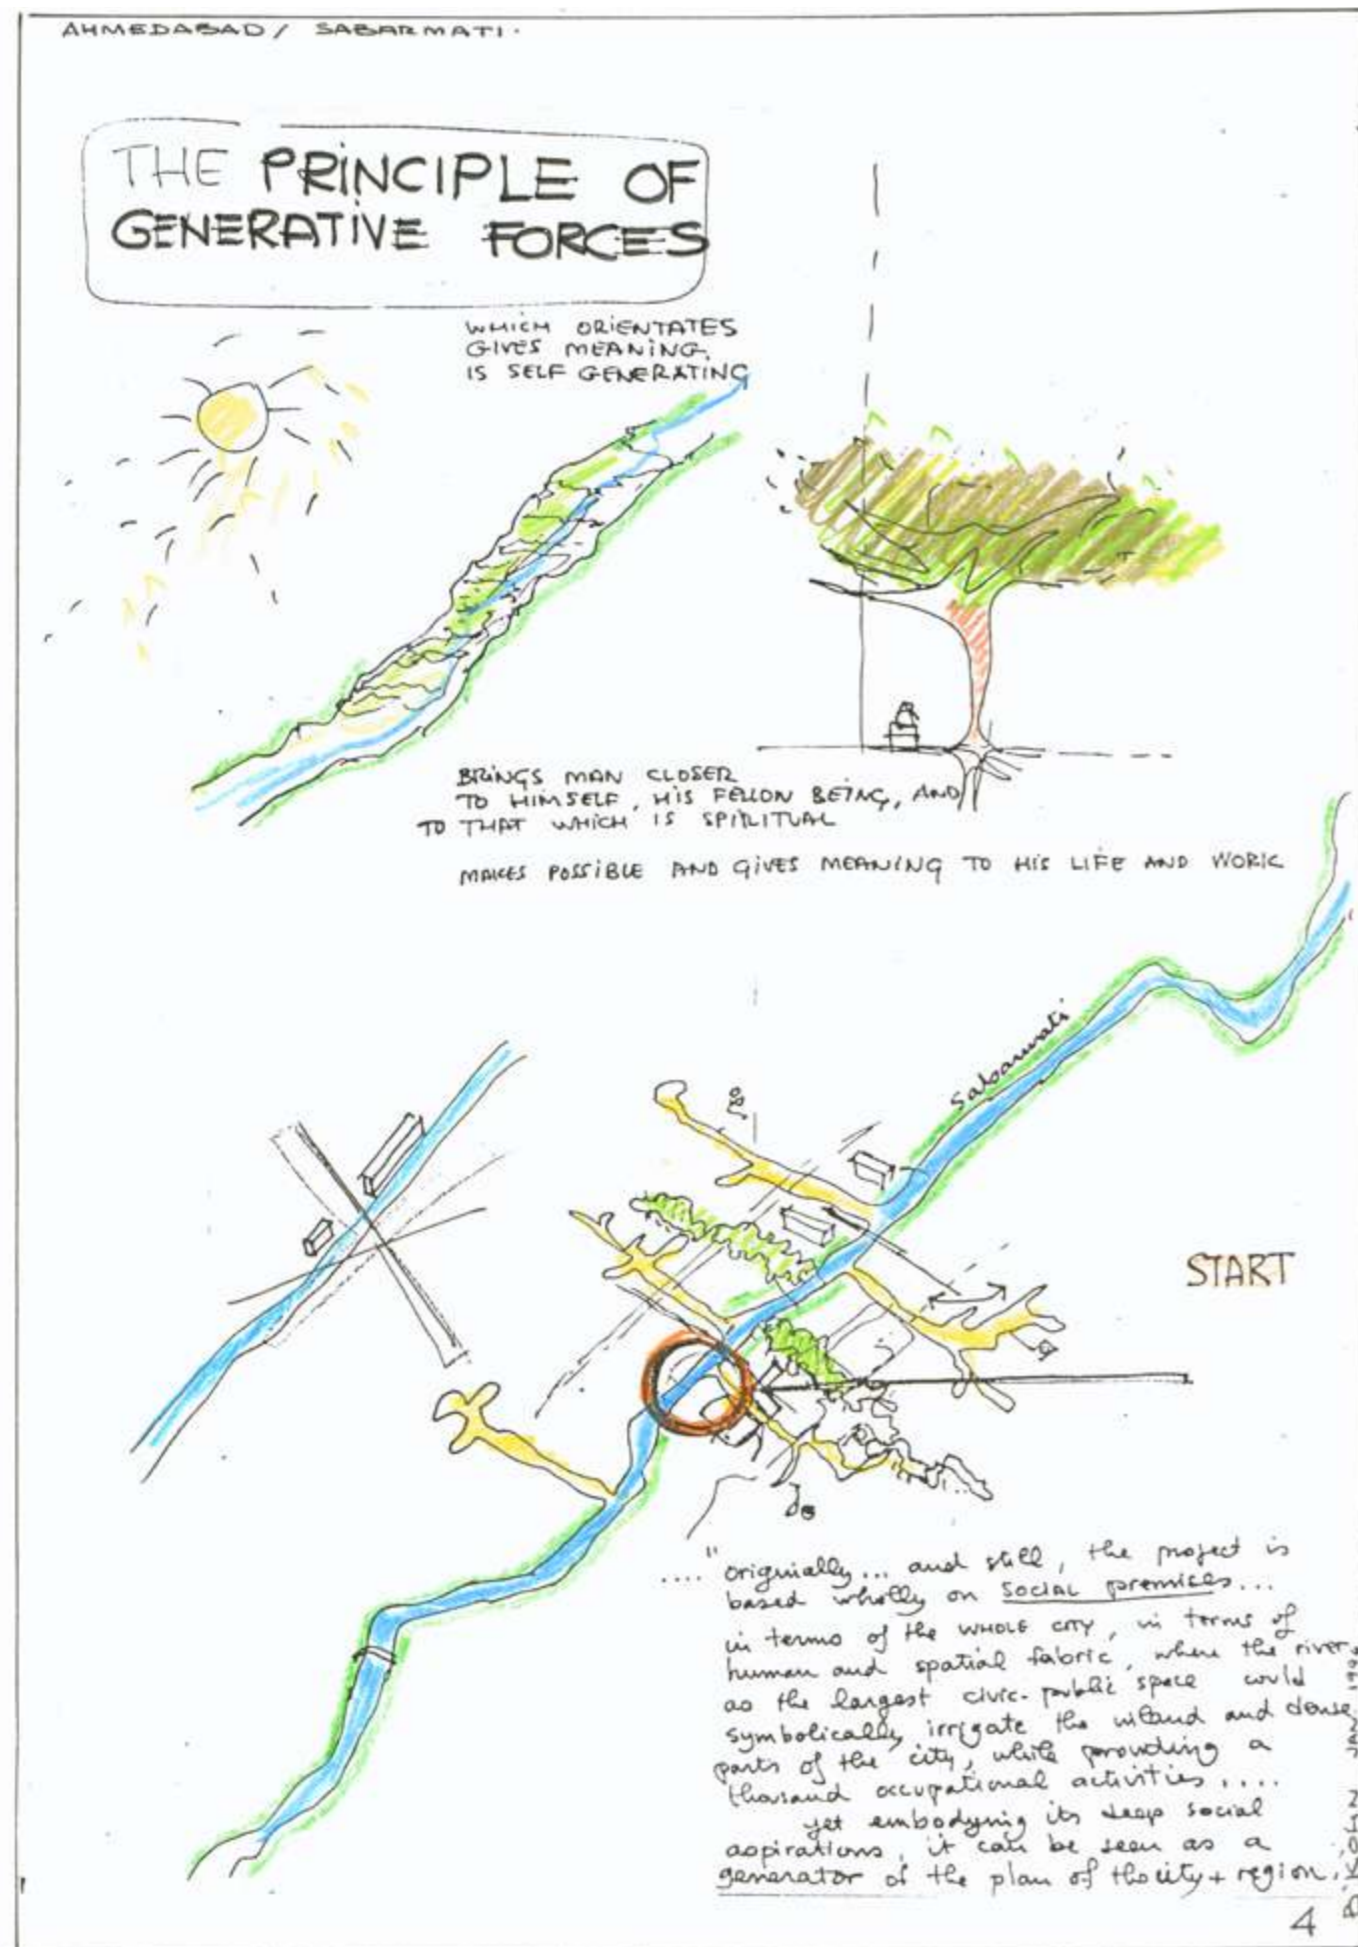 AHMEDABAD / SABARMATI.
THE PRINCIPLE OF
GENERATIVE FORCES
WHICH ORIENTATES
GIVES MEANING,
IS SELF GENERATING
BRINGS MAN CLOSER
TO HIMSELF, HIS FELLOW BEING, AND
TO THAT WHICH IS SPIRITUAL
MAKES POSSIBLE AND GIVES MEANING TO HIS LIFE AND WORK
Sabarmati
START
...." originally... and still, the project is
based wholly on SOCIAL premises...
in terms of the WHOLE CITY, in terms of
human and spatial fabric, where the river
as the largest civic-public space could
symbolically irrigate the inland and dense
parts of the city, while providing a
thousand occupational activities ....
yet embodying its deep social
aspirations, it can be seen as a
generator of the plan of the city + region.
4